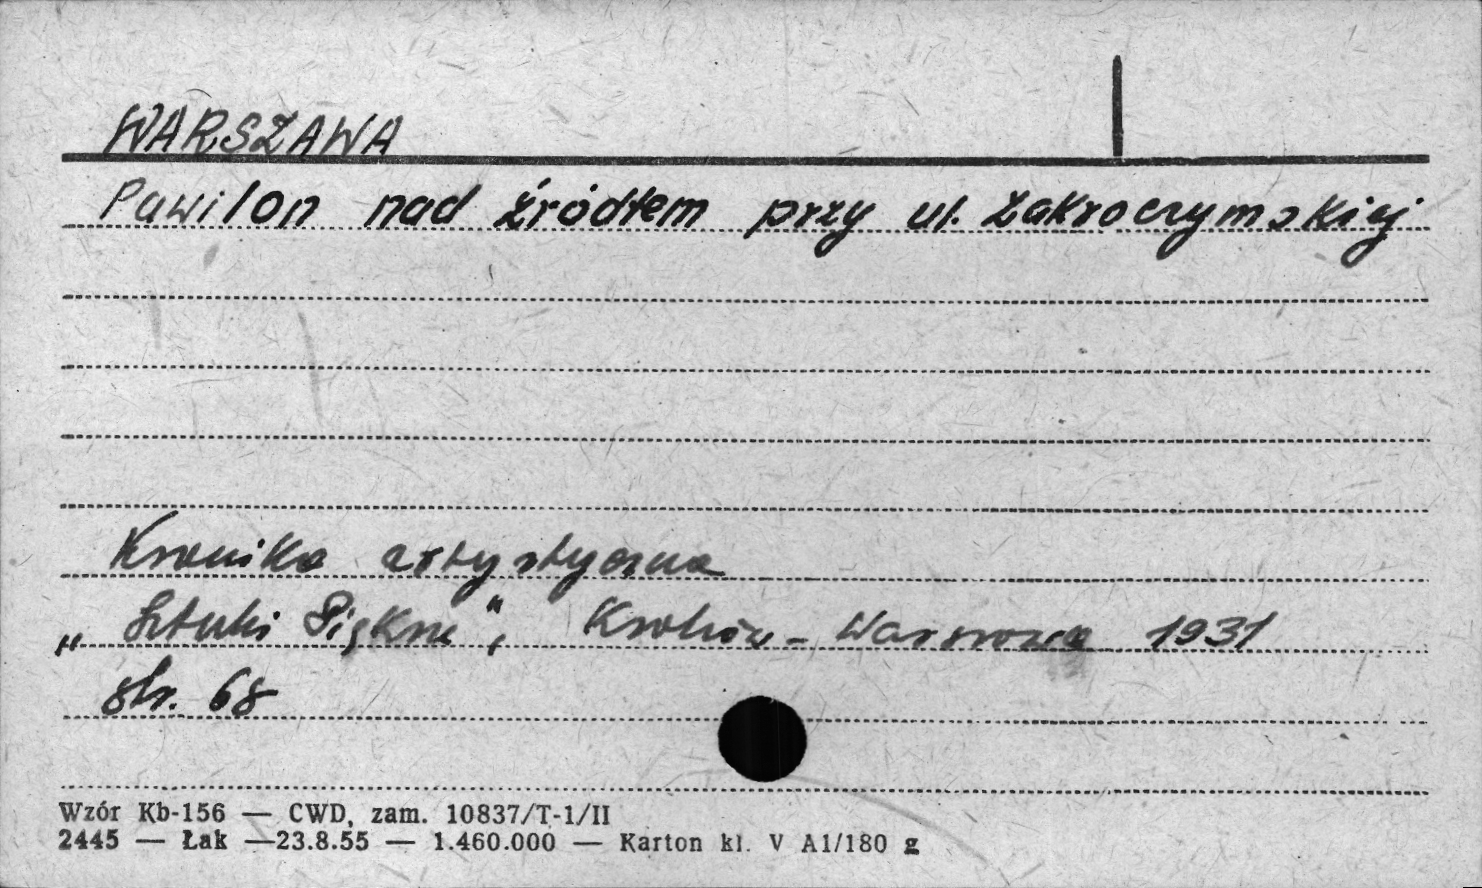 WARSZAWA
Pawilon nad źródłem przy ul. Zakroczymskiej
Kronika artystyczna
„Sztuki Piękne", Kraków - Warszawa 1931
str. 68
Wzór Kb-156 — CWD, zam. 10837/T-1/II
2445 — Łak —23.8.55 — 1.460.000 — Karton kl. V A1/180 g